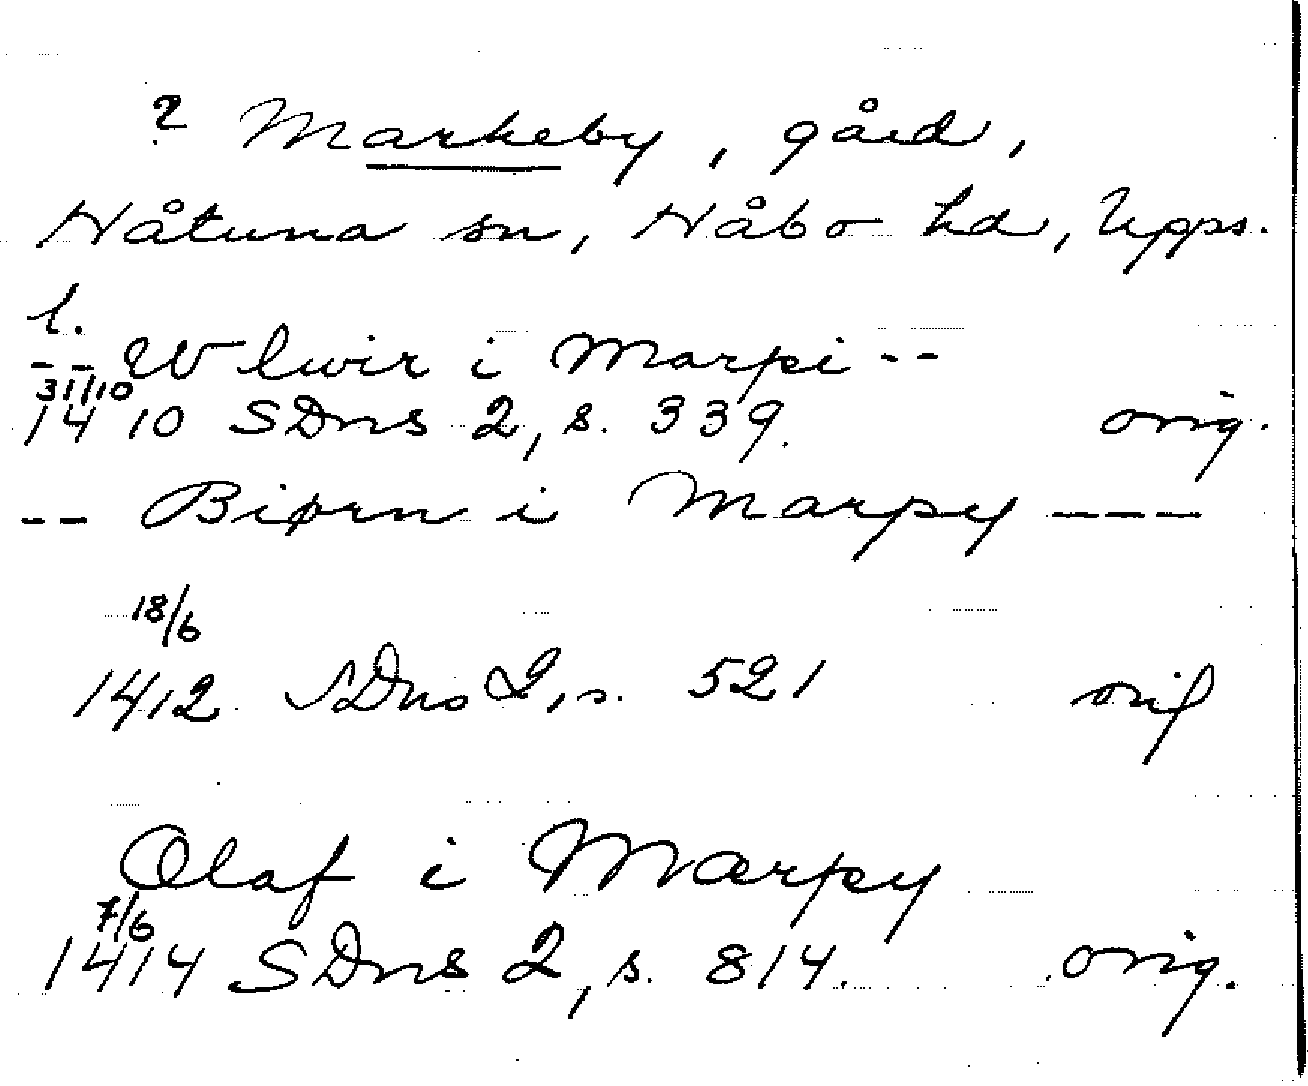 ? Markeby, gård,
Håtuna sn, Håbo hd, Upps.
l.
-- Wlwir i Marpi --
31/10
1410 SDns 2, s. 339. orig.
-- Biørn i Marpy ---
18/6
1412 SDns 2, s. 521 orig
Olaf i Marpy
7/6
1414 SDns 2, s. 814. orig.